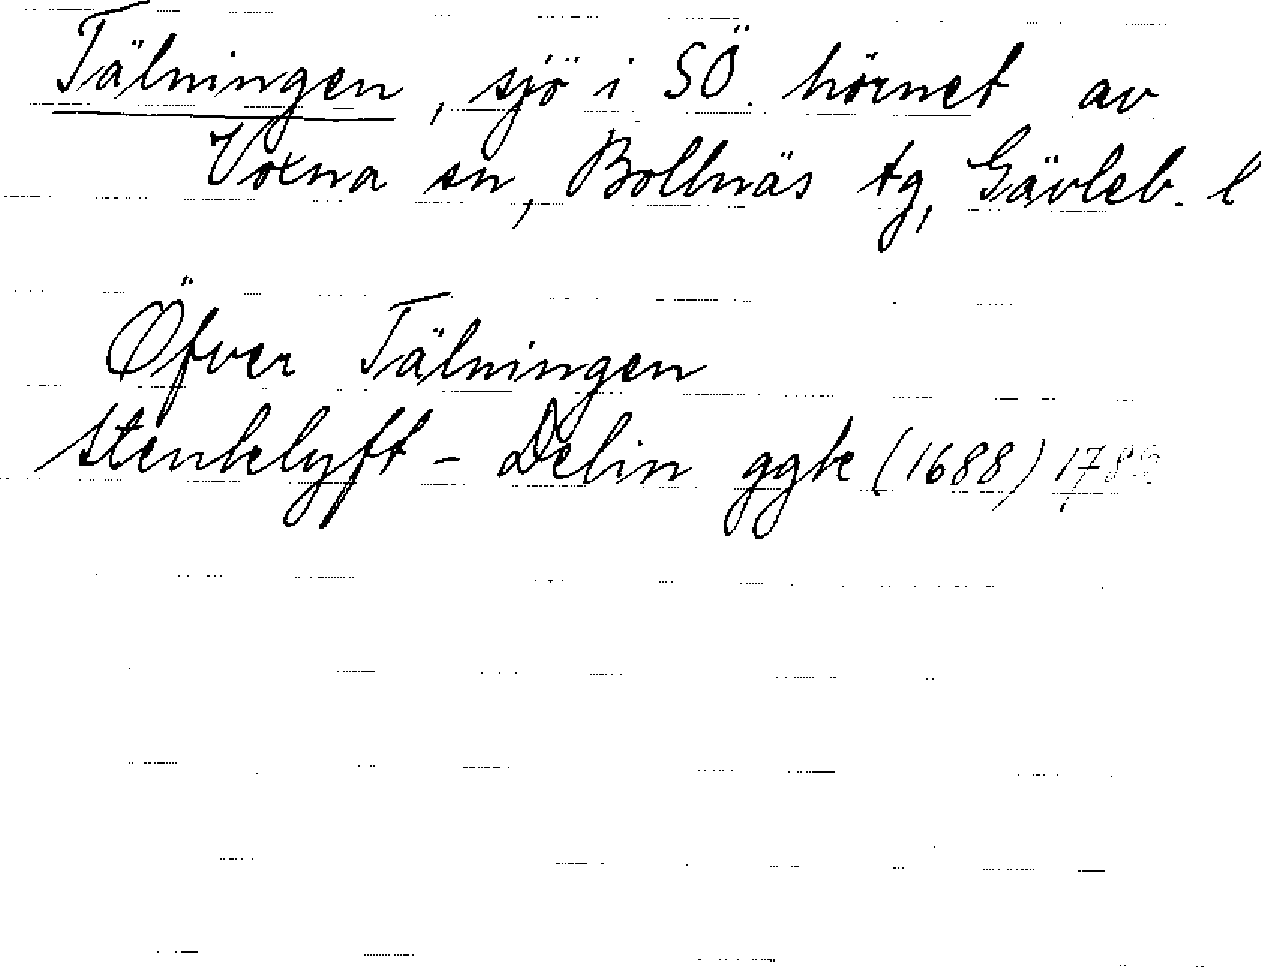 Tälningen, sjö i SÖ. hörnet av
Voxna sn, Bollnäs tg, Gävleb. l
Öfver Tälningen
Stenklyft - Delin ggk (1688)